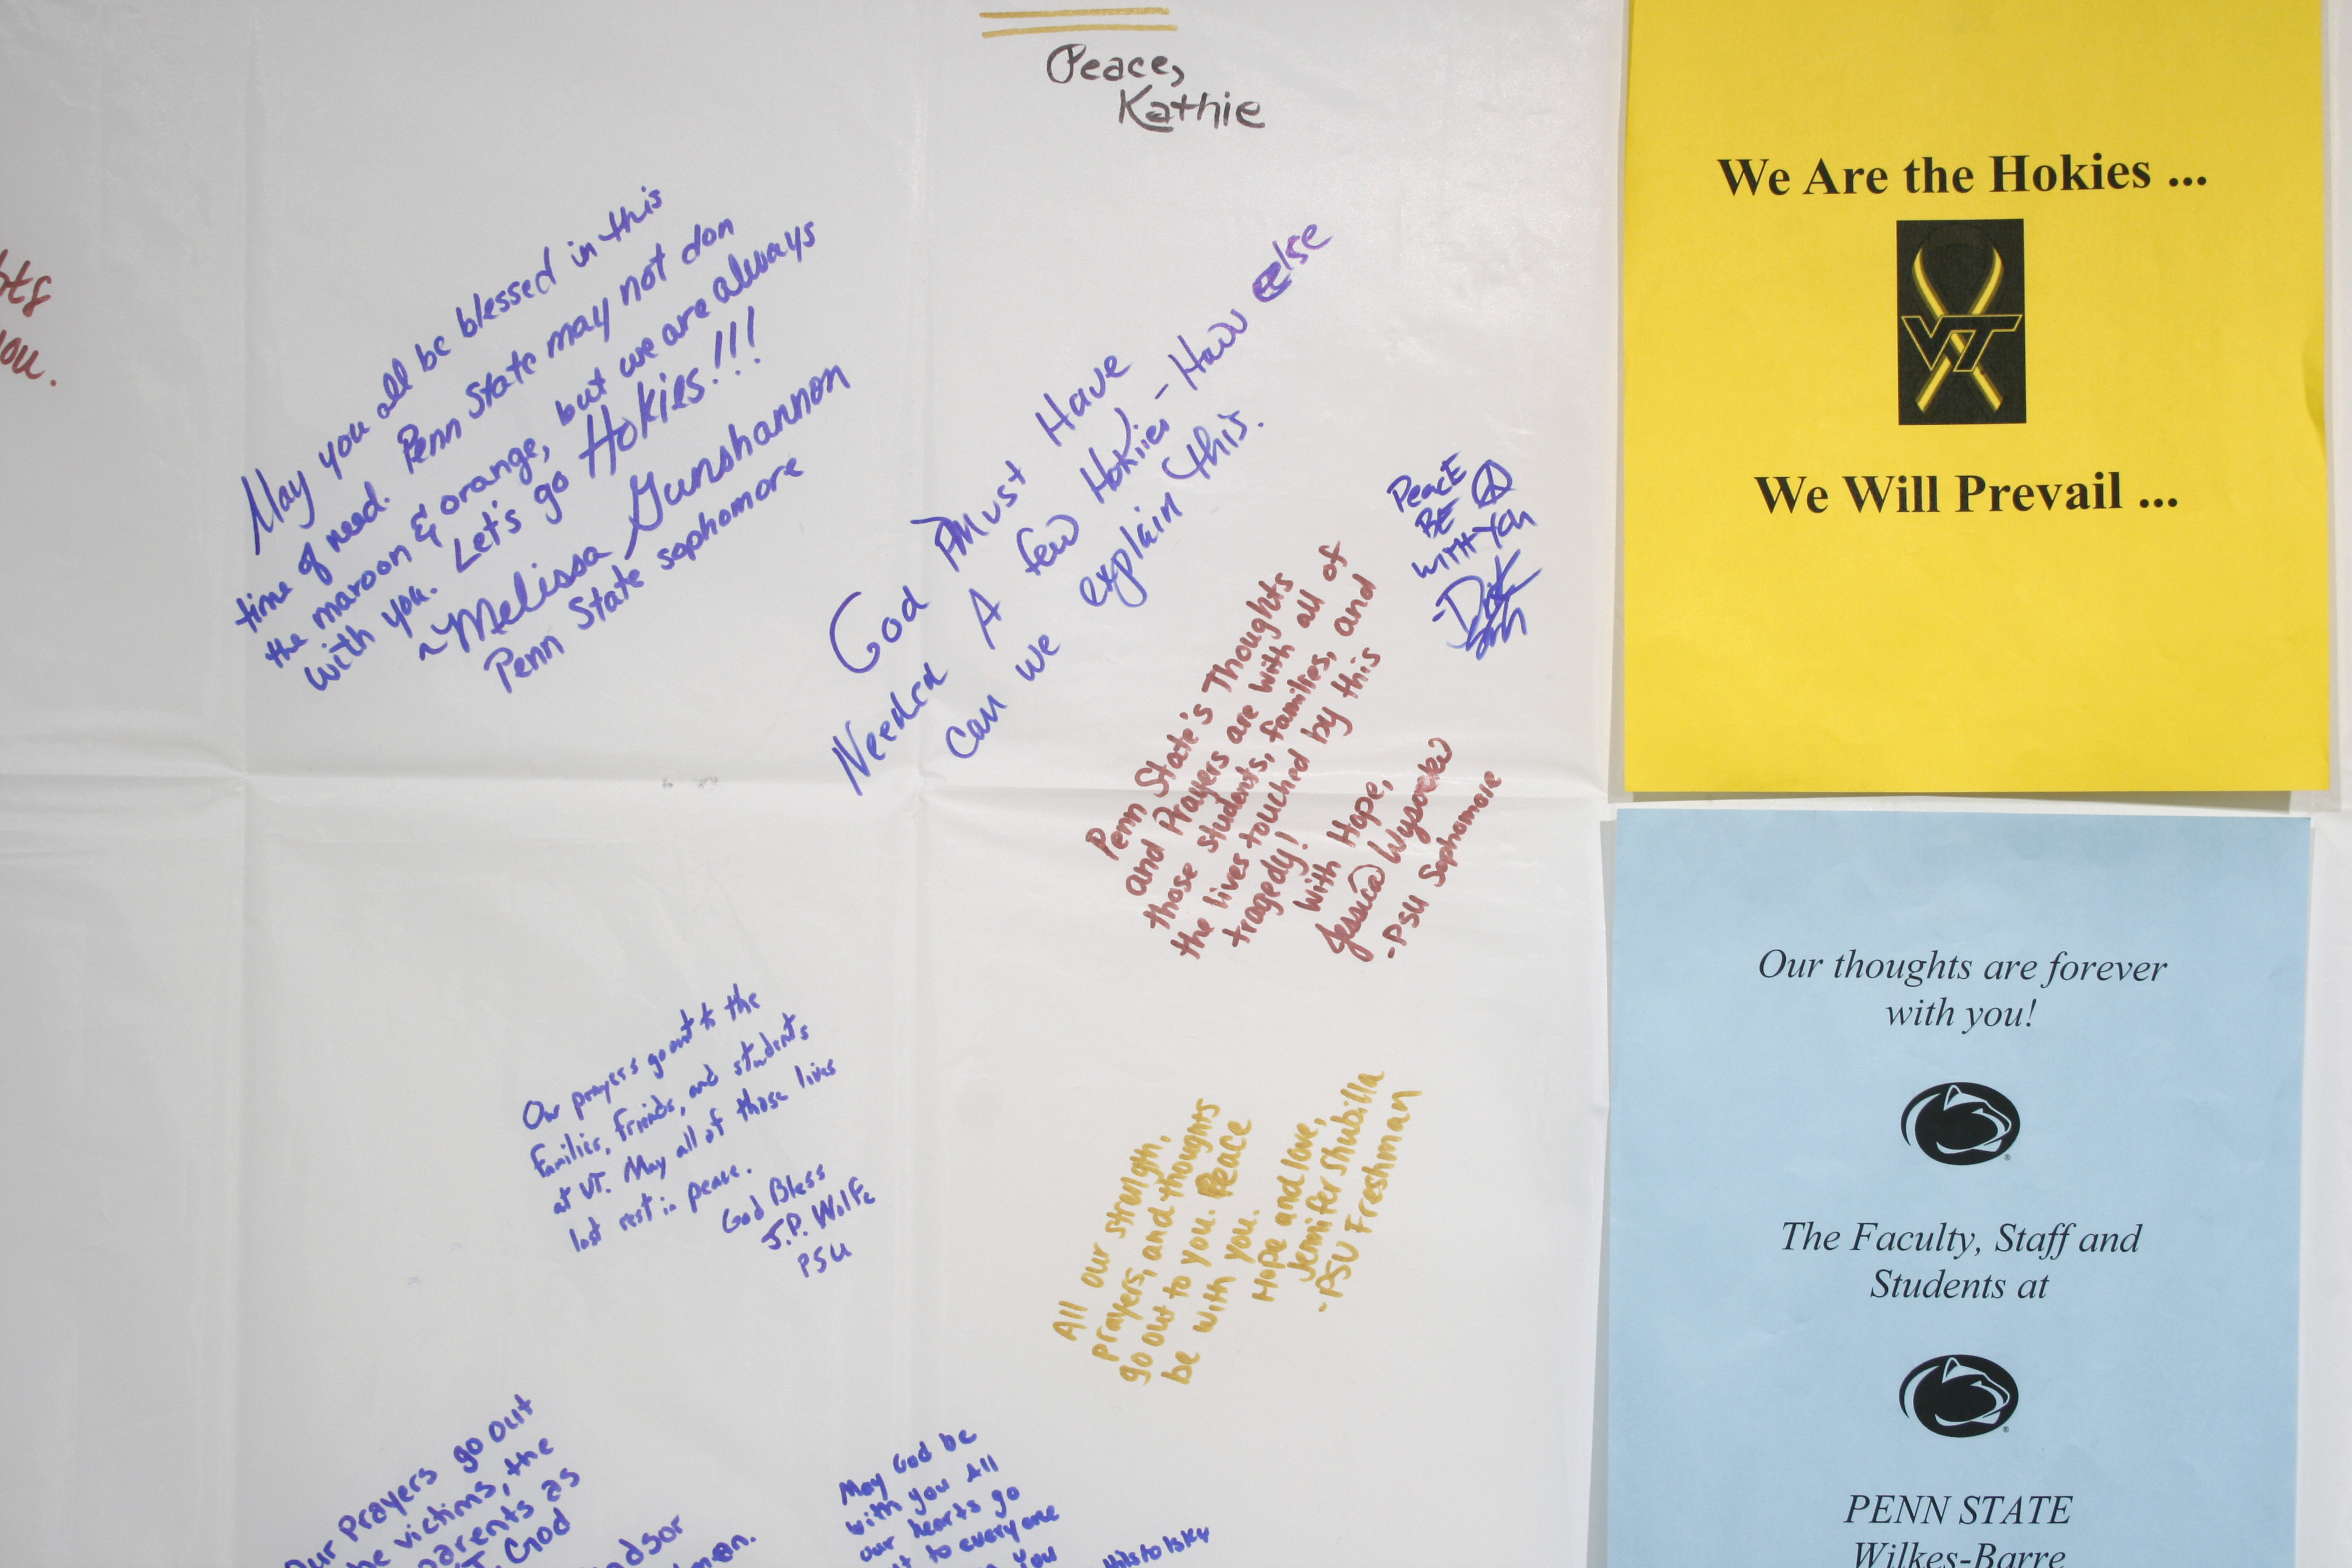 Peace,
Kathie
May you all be blessed in this
time of need. Penn State may not don
the maroon & orange, but we are always
with you. Let's go Hokies!!!
~Melissa Gunshannon
Penn State sophomore
God Must Have
Needed A few Hokies - How else
can we explain this.
PeacE
BE
WITH YOU
Penn State's Thoughts
and Prayers are with all of
those students, families, and
the lives touched by this
tragedy!
With Hope,
Jessica Wysocki
-PSU Sophomore
Our prayers go out to the
families, friends, and students
at VT. May all of those lives
lost rest in peace.
God Bless
J.P. Wolfe
PSU
All our strength,
prayers, and thoughts
go out to you. Peace
be with you.
Hope and love,
Jennifer Shubilla
-PSU Freshman
Our Prayers go out
victims, the
parents as
God
May God be
with you All
our hearts go
to everyone
you
ou.
We Are the Hokies ...
VT
We Will Prevail ...
Our thoughts are forever
with you!
The Faculty, Staff and
Students at
PENN STATE
Wilkes-Barre